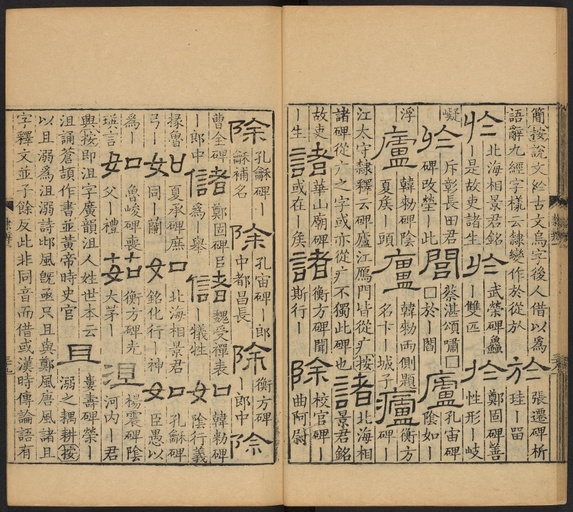 簡按說文於古文烏字後人借以為
語辭九經字樣云隸變作於從於
於 張遷碑析珪｜㽞
於 北海相景君銘｜是故吏諸生
於 武榮碑蠡｜雙匹
於 鄭固碑善性形｜岐嶷
於 斥彰長田君碑改塋｜此
閭 蔡湛頌嘯□□於｜閻
廬 孔宙碑陰如｜浮
廬 韓勑碑陰夏矦｜頭
廬 韓勑兩側題名卞｜城子
衡方碑｜江太守隸釋云碑廬江鴈門皆從疒按
諸碑從广之字或亦從疒不獨此碑也
諸 北海相景君銘故吏｜生
諸 華山廟碑或在｜矦
諸 衡方碑聞斯行｜
除 校官碑｜曲阿尉
除 孔龢碑｜龢補名
除 孔宙碑｜郎中都昌長
除 衡方碑｜郎中
除 曹全碑｜郎中
鄭固碑臣為｜舉
魏受禪表｜犧牲
韓勑碑陰行義掾魯｜
夏承碑麻｜弓
北海相景君銘化行｜神
孔龢碑臣愚以為｜
魯峻碑喪父｜禮
衡方碑光大茅｜
楊震碑陰河內｜君
與按即沮字廣韻沮人姓世本云
沮誦蒼頡作書並黃帝時史官
且 婁壽碑榮｜溺之耦耕按
以且溺為沮溺詩邶風旣亟只且與鄭風唐風諸且
字釋文並子餘反此非同音而借或漢時傳論語有